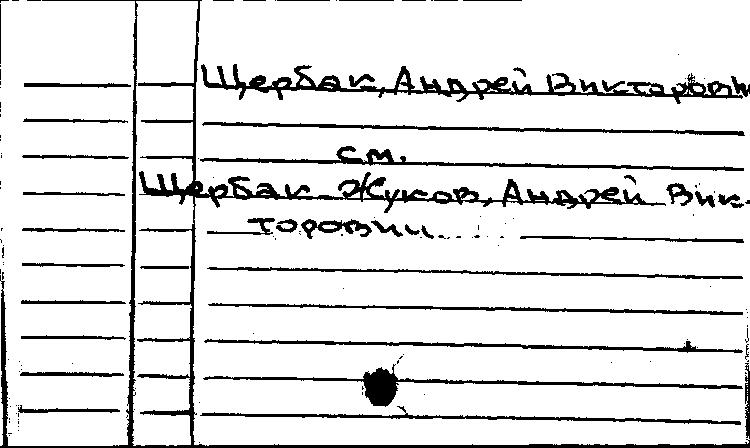 Щербак, Андрей Викторови
см.
Щербак-Жуков, Андрей Вик-
торович.